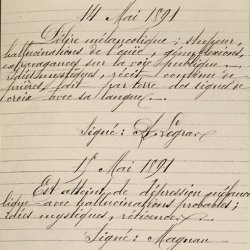 14 Mai 1891
Délire mélancolique ; stupeur,
hallucinations de l'ouïe, génuflexions,
extravagances sur la voie publique
Idées mystiques, récit continu de
prières, fait par terre des signes de
croix avec sa langue.
Signé : Legras
1 Mai 1891
Est atteint de dépression mélanco
lique avec hallucinations probables ;
idées mystiques, réticences
Signé : Magnan